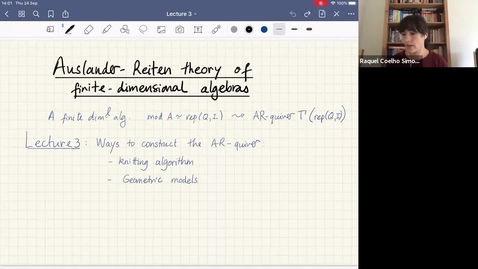 14:01 Thu 24 Sep
Lecture 3
Raquel Coelho Simo...
Auslander-Reiten theory of
finite-dimensional algebras
A finite dim'l alg. mod A ≃ rep(Q,I) ⇝ AR-quiver Γ(rep(Q,I))
Lecture 3: Ways to construct the AR-quiver:
- knitting algorithm
- Geometric models